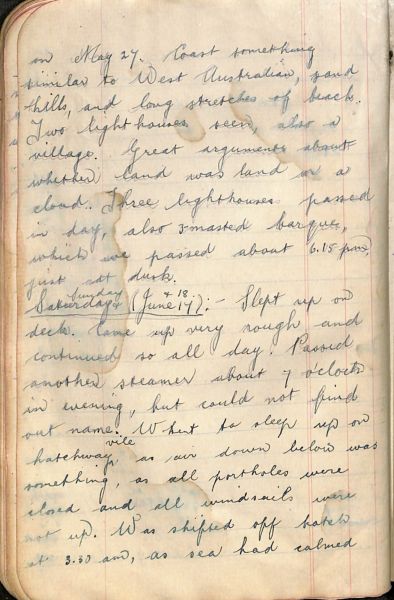 on May 27. Coast something
similar to West Australian, sand
hills, and long stretches of beach.
Two lighthouses seen, also a
village. Great arguments about
whether land was land or a
cloud. Three lighthouses passed
in day, also 3 masted barque,
which we passed about 6.15 pm,
just at dusk.
Saturday & Sunday (June 17 & 18):- Slept up on
deck. Came up very rough and
continued so all day. Passed
another steamer about 7 o'clock
in evening, but could not find
out name. Went to sleep up on
hatchway as air down below was
something vile, as all portholes were
closed and all windsails were
not up. Was shifted off hatch
at 3.30 am, as sea had calmed